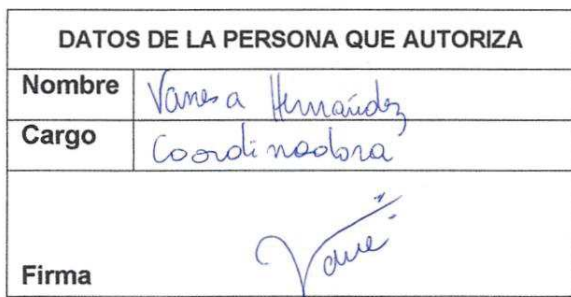 DATOS DE LA PERSONA QUE AUTORIZA
Nombre Vanesa Hernández
Cargo Coordinadora
Firma Vane